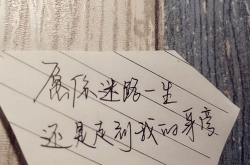 愿你迷路一生
还是走到我的身旁